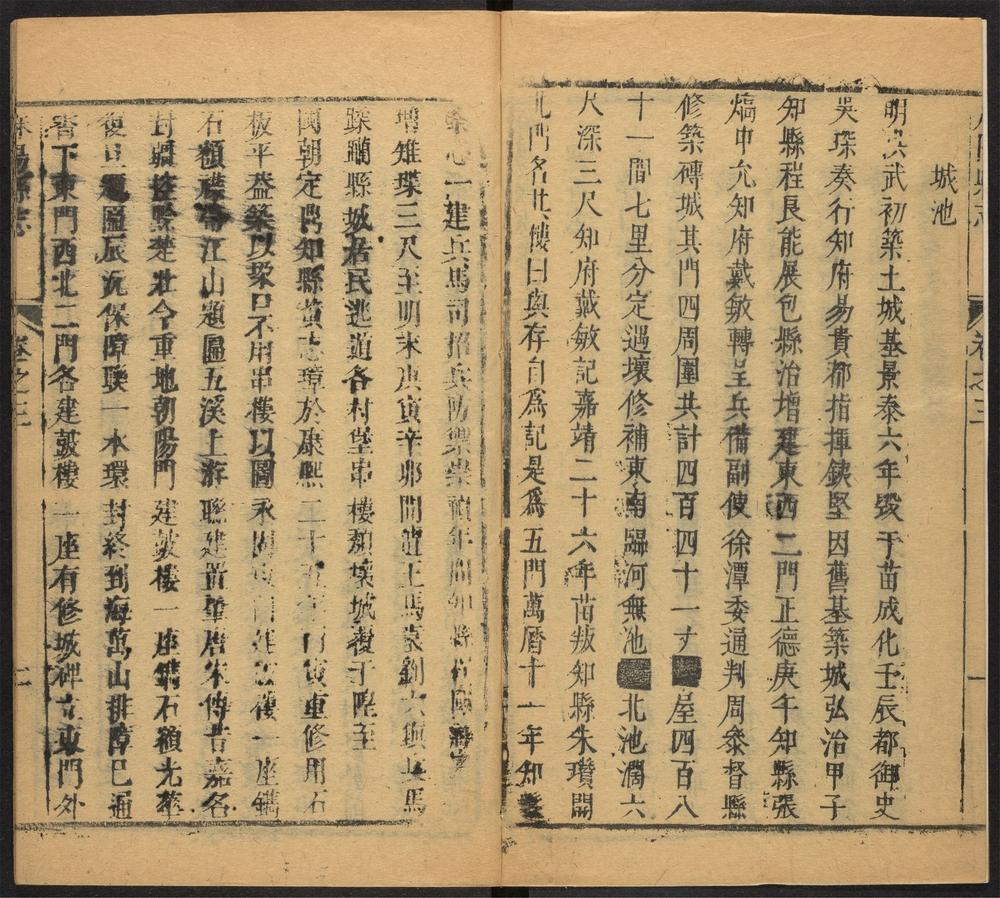 城池
明洪武初築土城基景泰六年毀于苗成化壬辰都御史
吳琛奏行知府易貴都指揮錢堅因舊基築城弘治甲子
知縣程良能展包縣治增建東西二門正德庚午知縣張
熵申允知府戴敏轉呈兵備副使徐潭委通判周叅督縣
修築磚城其門四周圍共計四百四十一丈 屋四百八
十一間七里分定遇壞修補東南臨河無池 北池濶六
尺深三尺知府戴敏記嘉靖二十六年苗叛知縣朱瓚開
北門名其樓曰與存自為記是為五門萬曆十一年知縣
心一建兵馬司招兵防禦崇禎年間知縣
增雉堞三尺至明末庚寅辛卯間 王馬 劉六 兵馬
蹂躪縣城居民逃遁各村堡串樓頹壞城覆于隍至
國朝定鼎知縣黃志璋於康熙二十 年 寅重修用石
板平葢築以 不用串樓以圖永固 門建 樓一座鐫
石額 江山題匾五溪上游聯建置肇唐宋傳昔嘉名
封疆控黔楚壯今重地朝陽門建鼓樓一座鐫石額光華
復旦 匾辰沅保障聯一水環封終到海萬山排障巳通
霄下東門西北二門各建鼓樓一座有修城碑立東門外
麻陽縣志
卷之三
卷之三
一